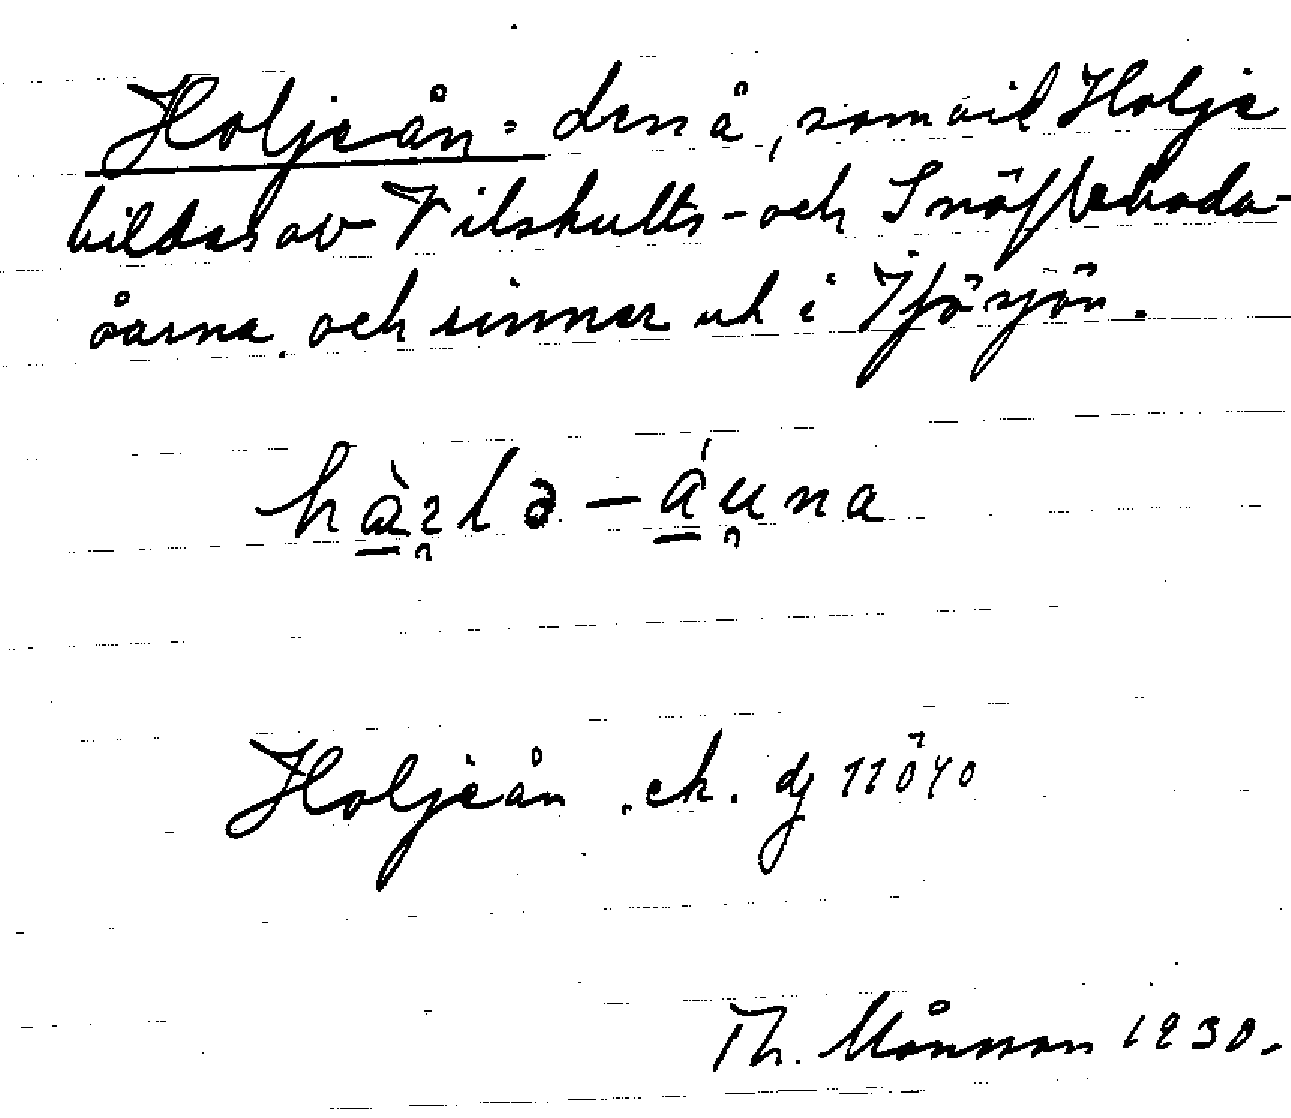 Holjeån = den å, som vid Holje
bildas av Vilshults- och Snöfleboda-
åarna och rinner ut i Ifösjön.
Holjeån ek.
Th. Månsson 1930.